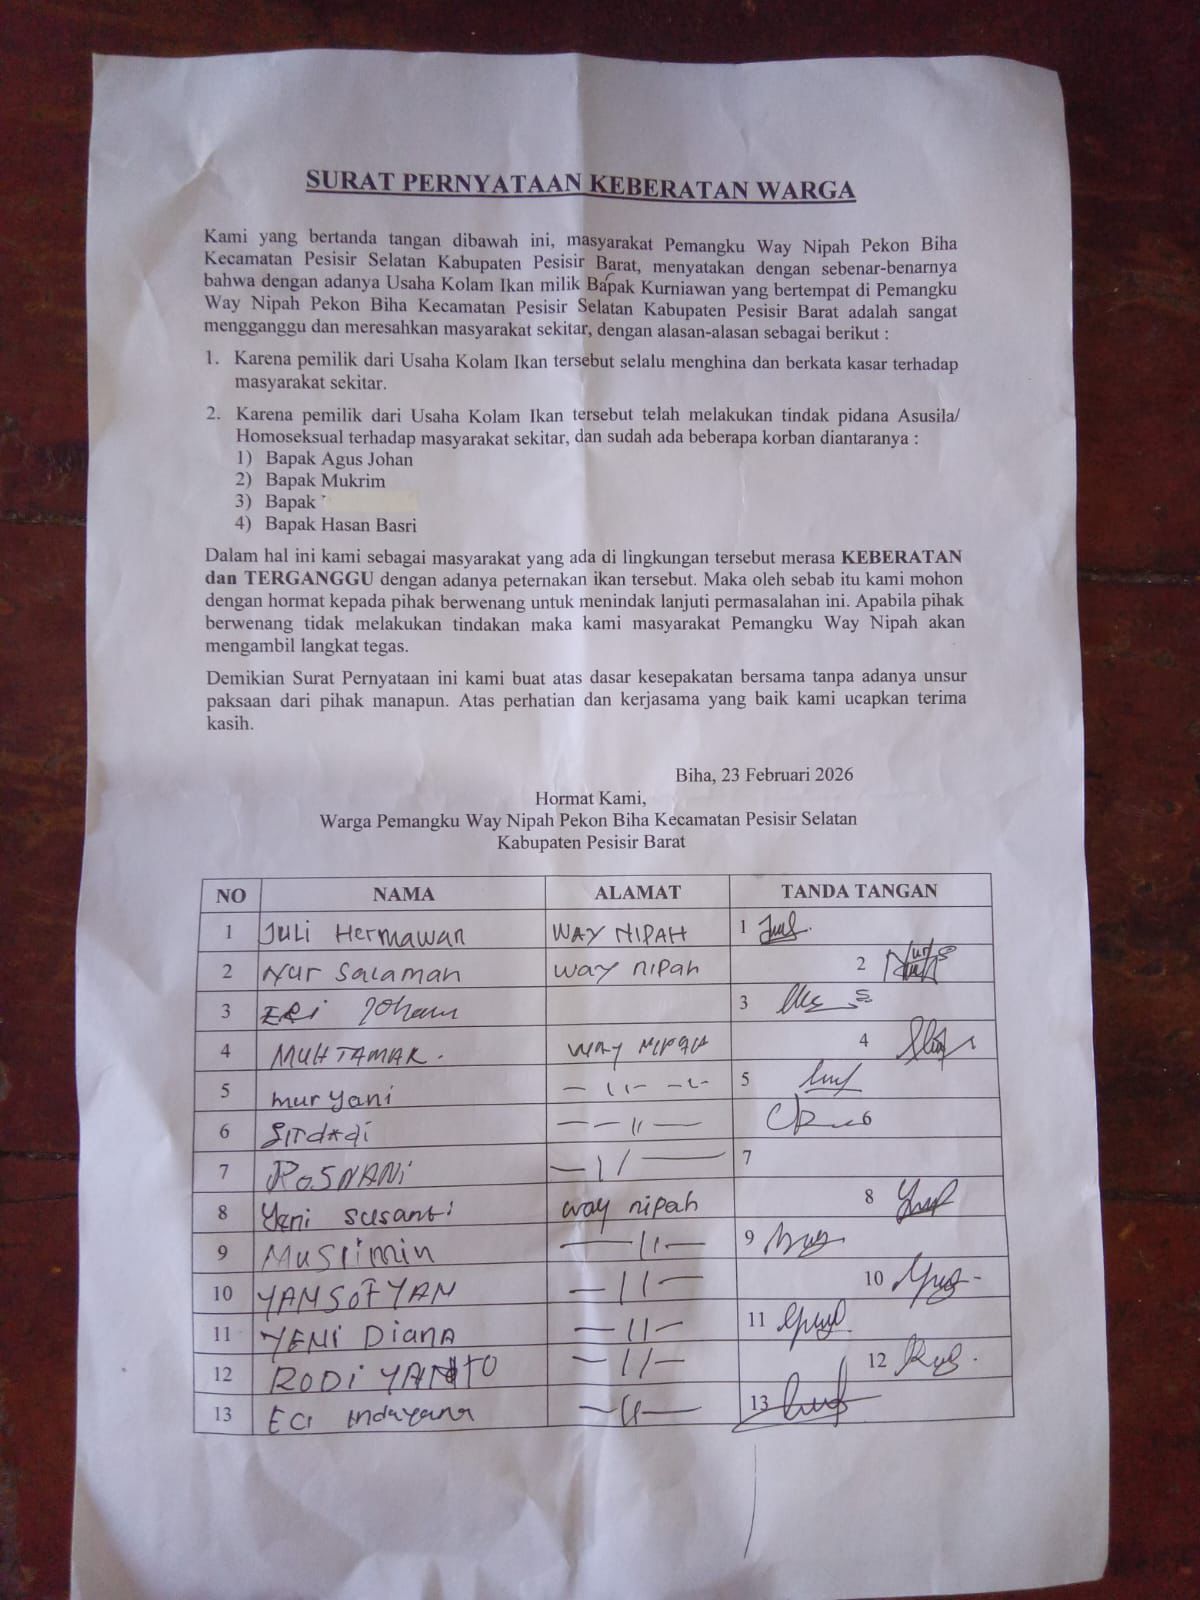 SURAT PERNYATAAN KEBERATAN WARGA
Kami yang bertanda tangan dibawah ini, masyarakat Pemangku Way Nipah Pekon Biha
Kecamatan Pesisir Selatan Kabupaten Pesisir Barat, menyatakan dengan sebenar-benarnya
bahwa dengan adanya Usaha Kolam Ikan milik Bapak Kurniawan yang bertempat di Pemangku
Way Nipah Pekon Biha Kecamatan Pesisir Selatan Kabupaten Pesisir Barat adalah sangat
mengganggu dan meresahkan masyarakat sekitar, dengan alasan-alasan sebagai berikut :
1. Karena pemilik dari Usaha Kolam Ikan tersebut selalu menghina dan berkata kasar terhadap
masyarakat sekitar.
2. Karena pemilik dari Usaha Kolam Ikan tersebut telah melakukan tindak pidana Asusila/
Homoseksual terhadap masyarakat sekitar, dan sudah ada beberapa korban diantaranya :
1) Bapak Agus Johan
2) Bapak Mukrim
3) Bapak
4) Bapak Hasan Basri
Dalam hal ini kami sebagai masyarakat yang ada di lingkungan tersebut merasa KEBERATAN
dan TERGANGGU dengan adanya peternakan ikan tersebut. Maka oleh sebab itu kami mohon
dengan hormat kepada pihak berwenang untuk menindak lanjuti permasalahan ini. Apabila pihak
berwenang tidak melakukan tindakan maka kami masyarakat Pemangku Way Nipah akan
mengambil langkat tegas.
Demikian Surat Pernyataan ini kami buat atas dasar kesepakatan bersama tanpa adanya unsur
paksaan dari pihak manapun. Atas perhatian dan kerjasama yang baik kami ucapkan terima
kasih.
Biha, 23 Februari 2026
Hormat Kami,
Warga Pemangku Way Nipah Pekon Biha Kecamatan Pesisir Selatan
Kabupaten Pesisir Barat
NO NAMA ALAMAT TANDA TANGAN
1 Juli Hermawan WAY NIPAH 1
2 Nur Salaman way nipah 2
3 ERI Johan 3
4 MUHTAMAR. way nipah 4
5 muryani 5
6 6
7 ROSNANI 7
8 Yeni Susanti way nipah 8
9 Muslimin 9
10 YANSOFYAN 10
11 YENI Diana 11
12 RODI YANTO 12
13 Eci indayana 13